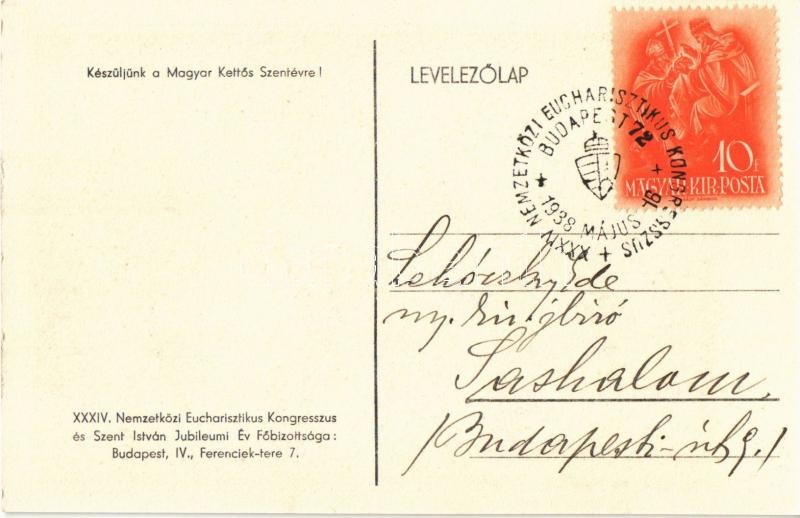 Készüljünk a Magyar Kettős Szentévre!
LEVELEZŐLAP
XXXIV. NEMZETKÖZI EUCHARISZTIKUS KONGRESSZUS
BUDAPEST 72
1938 MÁJUS
10 f
MAGYAR·KIR·POSTA
Lehóczky Ede
ny.
Sashalom,
/Budapesti-út 9./
XXXIV. Nemzetközi Eucharisztikus Kongresszus
és Szent István Jubileumi Év Főbizottsága:
Budapest, IV., Ferenciek-tere 7.